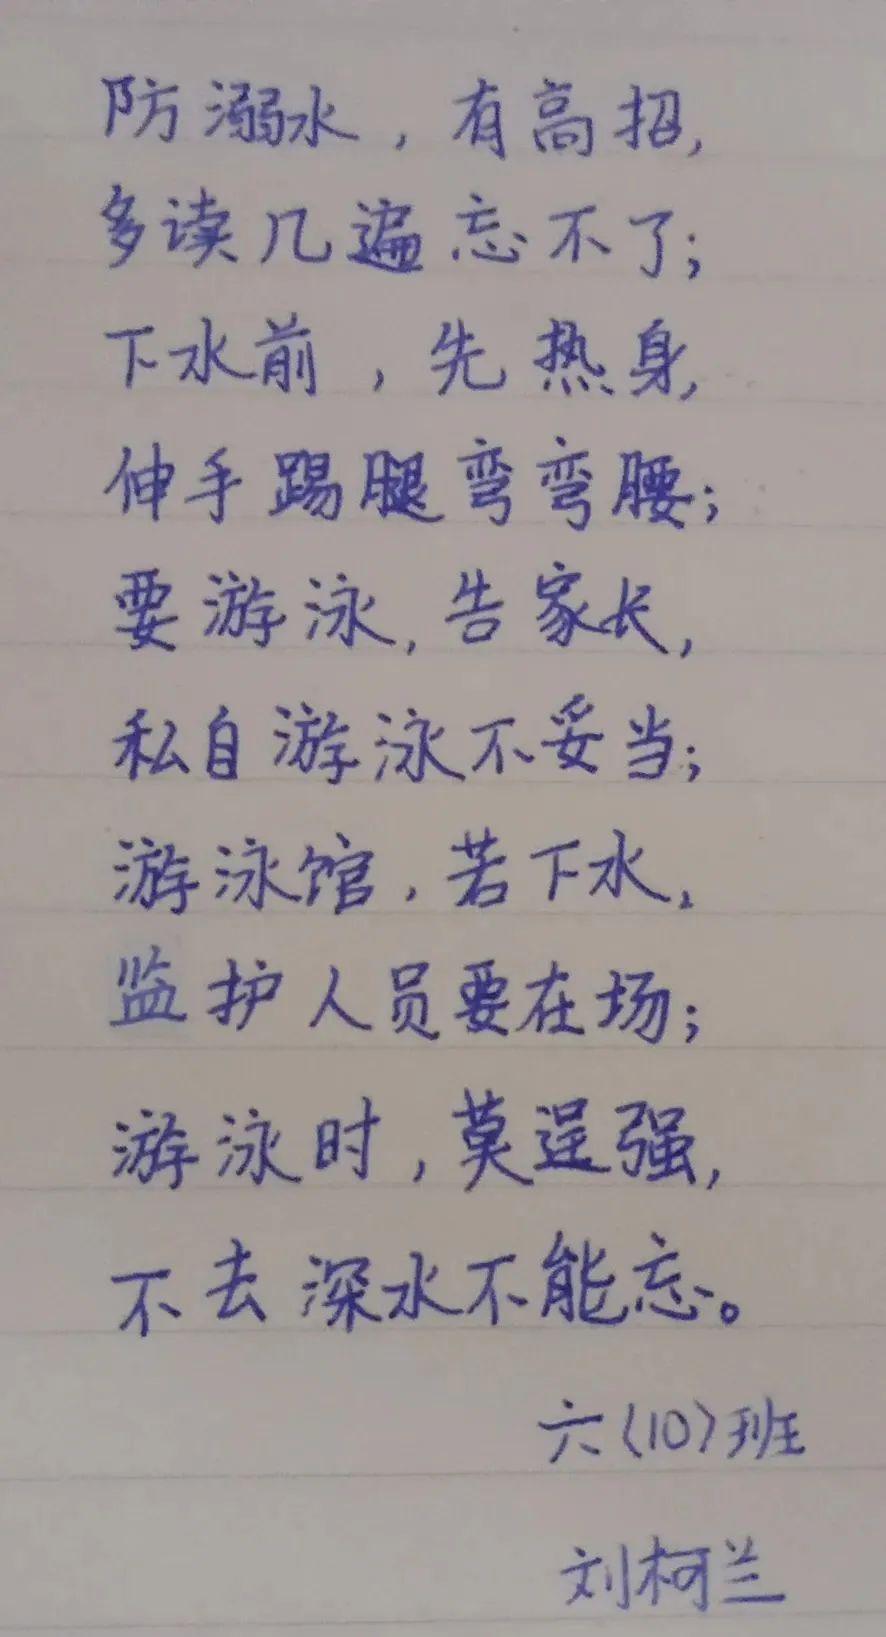 防溺水，有高招，
多读几遍忘不了；
下水前，先热身，
伸手踢腿弯弯腰；
要游泳，告家长，
私自游泳不妥当；
游泳馆，若下水，
监护人员要在场；
游泳时，莫逞强，
不去深水不能忘。
六〈10〉班
刘柯兰